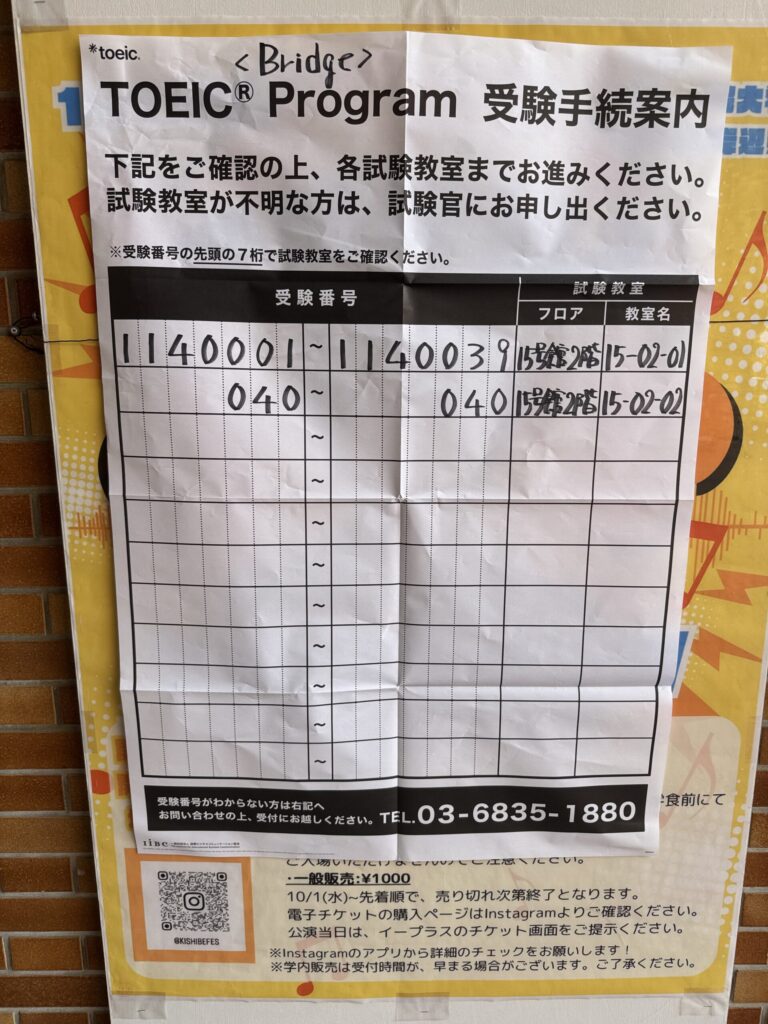 *toeic.
<Bridge>
TOEIC® Program 受験手続案内
下記をご確認の上、各試験教室までお進みください。
試験教室が不明な方は、試験官にお申し出ください。
※受験番号の先頭の7桁で試験教室をご確認ください。
受験番号 試験教室
フロア 教室名
1140001 ~ 1140039 15号館2階 15-02-01
040 ~ 040 15号館2階 15-02-02
~
~
~
~
~
~
~
~
~
受験番号がわからない方は右記へ
お問い合わせの上、受付にお越しください。 TEL.03-6835-1880
IIBC 一般財団法人 国際ビジネスコミュニケーション協会
食前にて
ご入場いただけませんのでご注意ください。
・一般販売:¥1000
10/1(水)~先着順で、売り切れ次第終了となります。
電子チケットの購入ページはInstagramよりご確認ください。
公演当日は、イープラスのチケット画面をご提示ください。
@KISHIBEFES
※Instagramのアプリから詳細のチェックをお願いします!
※学内販売は受付時間が、早まる場合がございます。ご了承ください。